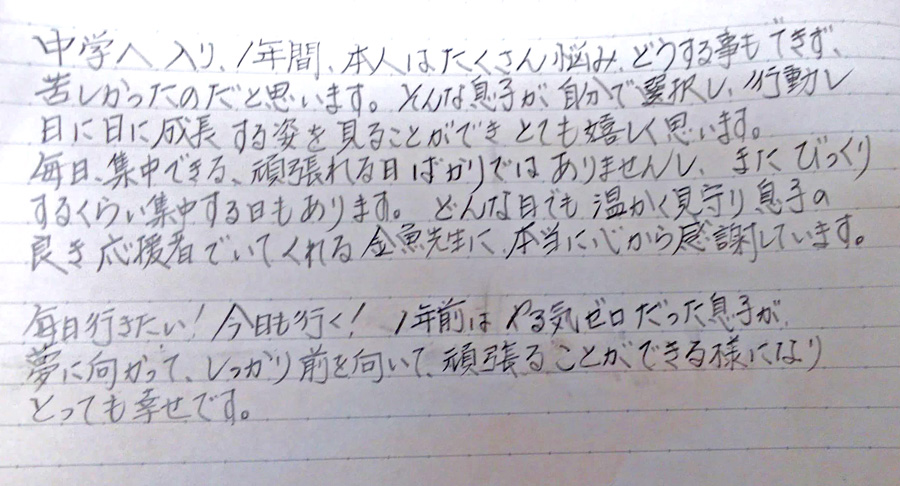 中学へ入り、1年間、本人はたくさん悩み、どうする事もできず、
苦しかったのだと思います。そんな息子が、自分で選択し、行動し
日に日に成長する姿を見ることができとても嬉しく思います。
毎日、集中できる、頑張れる日ばかりではありませんし、またびっくり
するくらい集中する日もあります。どんな日でも温かく見守り息子の
良き応援者でいてくれる金魚先生に、本当に心から感謝しています。
毎日行きたい!今日も行く!1年前はやる気ゼロだった息子が、
夢に向かって、しっかり前を向いて、頑張ることができる様になり
とっても幸せです。